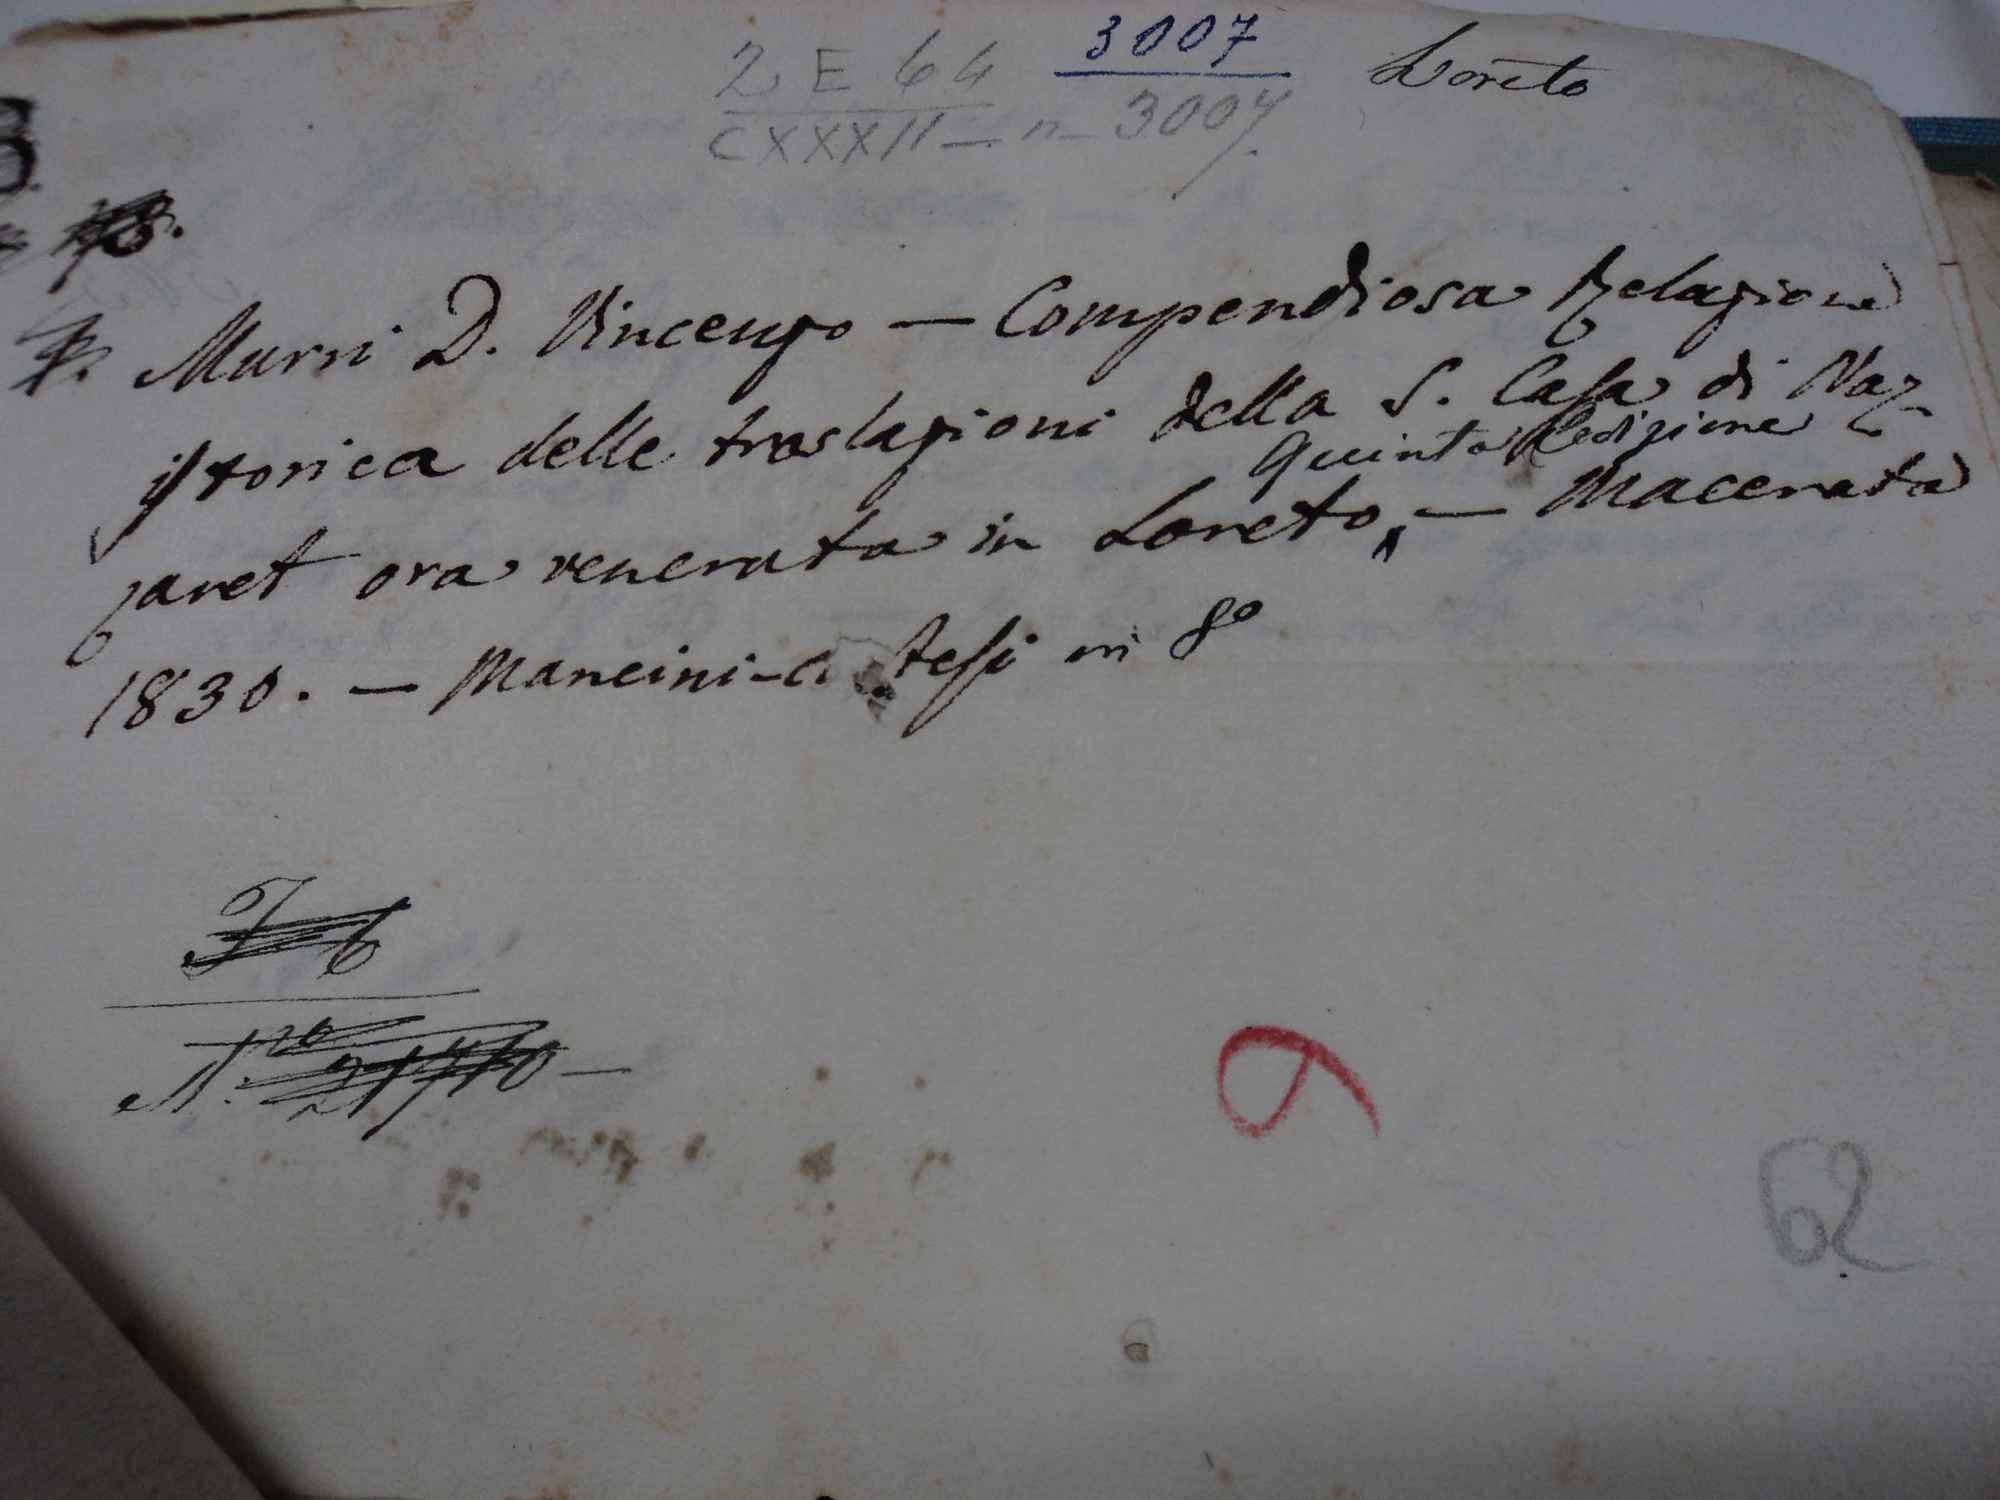 2 E 64 3007 Loreto
CXXXII - n - 3007.
Murri D. Vincenzo — Compendiosa Relazione
istorica delle traslazioni della S. Casa di Na-
Quinta Edizione
zaret ora venerata in Loreto, — Macerata
1830. — Mancini-Cortesi in 8º
6
62